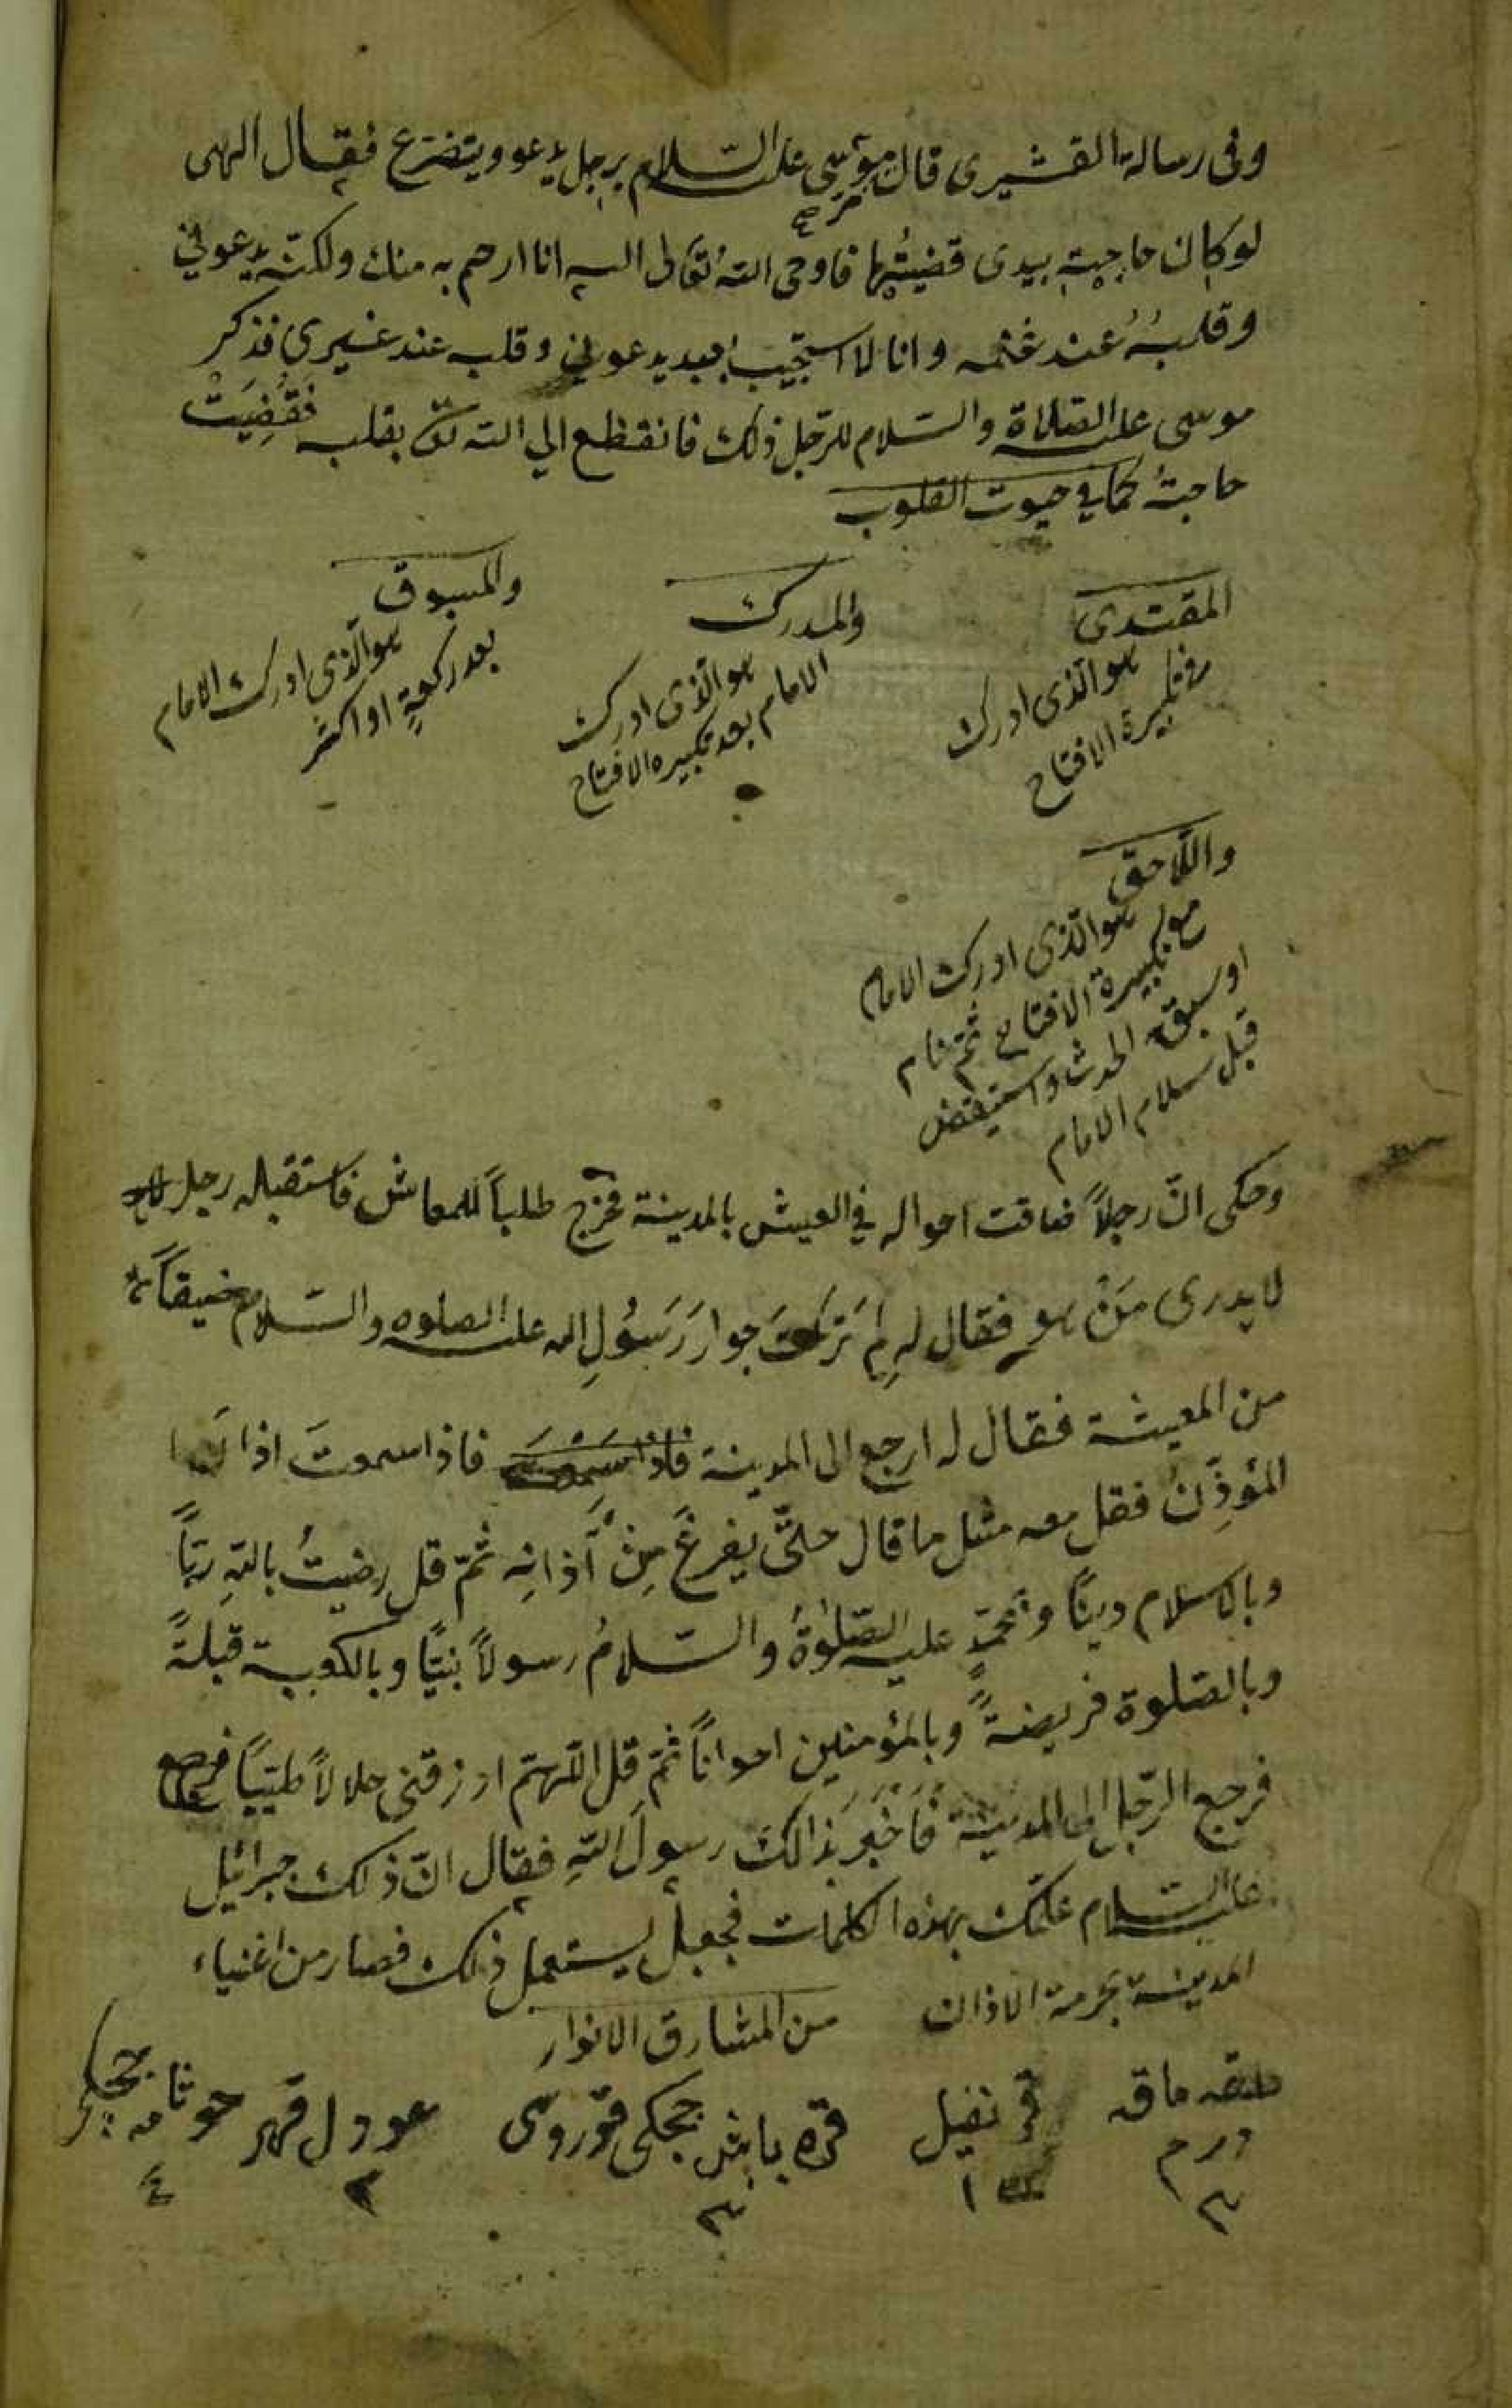 وفى رسالة القشيرى قال موسى عليه السلام برجل يدعو ويتضرع فقال الهى
مر صح
لو كان حاجته بيدى قضيتُها فاوحى الله تعالى اليه انا ارحم به منك ولكنّه يدعونى
وقلبهُ عند غنمه وانا لا استجيب لعبد يدعونى وقلبه عند غيرى فذكر
موسى عليه الصلاة والسّلام للرّجل ذلك فانقطع الى الله تع بقلبه فَقُضِيَتْ
حاجتهُ كما فى حيوت القلوب
المقتدى
هو الذى ادرك
فى تكبيرة الافتتاح
والمدرك
هو الذى ادرك
الامام بعد تكبيره الافتتاح
والمسبوق
هو الّذى ادرك الامام
بعد ركعةٍ او اكثر
واللّاحق
هو الّذى ادرك الامام
مع تكبيرة الافتتاح ثمّ نام
او سبقه الحدث واستيقض
قبل سلام الامام
وحكى انّ رجلاً ضاقت احواله فى العيش بالمدينة فخرج طلباً للمعاش فاستقبله رجل
لا يدرى مَنْ هو فقال له لِمَ تَرَكتَ جوارَ رَسُولِ الله عليه الصلوه والسّلام ضيقاً
من المعيشة فقال له ارجع الى المدينة فاذا سَمِعْتَ فاذا سمعتَ اذانَ
المُؤذِّن فقل معه مثل ما قال حتّى يفرغَ مِنْ آذانِه ثمّ قل رضيتُ باللهِ ربّاً
وبالاسلام ديناً وبمحمّدٍ عليه الصّلوٰةُ والسّلامُ رسولاً نبيّاً وبالكعبة قبلةً
وبالصلوة فريضةً وبالمؤمنين اخواناً ثمّ قل اللّهمّ ارزقنى حلالاً طيّباً
فرجع الرّجل الى المدينة فَاَخْبَرَ بذالك رسولَ اللهِ فقال انّ ذلك جبرائيل
عليه السّلام علّمك بهذه الكلمات فجعل يستعمل ذلك فصار من اغنياء
المدينة بحرمة الاذان من المشارق الانوار
ماقه درم ٣
قرنفيل ١
قره باش چچكى قوروسى ٣
عود ل قهر ٢